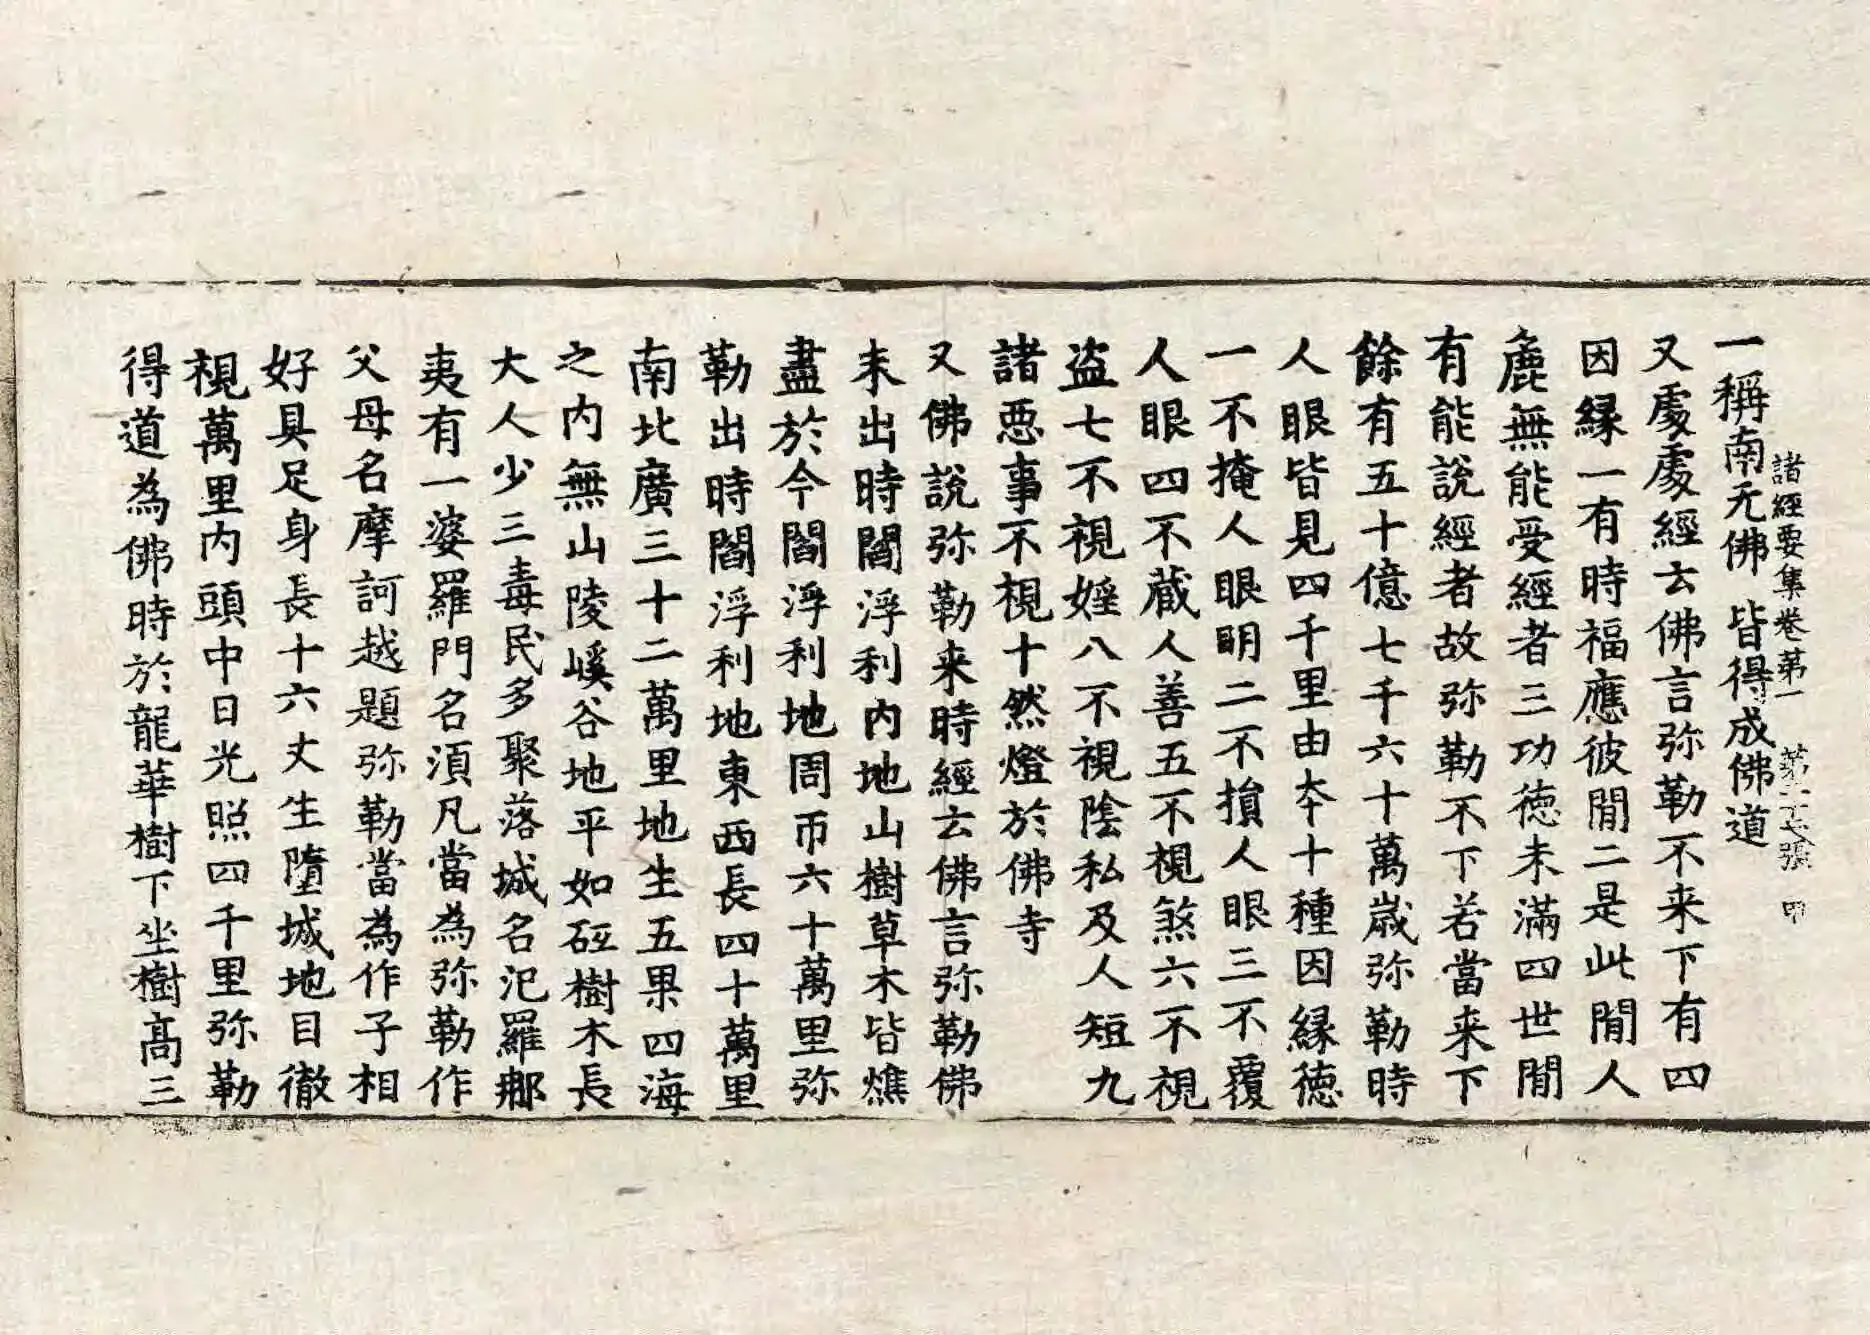 諸經要集卷第一 第二七張 甲
一稱南无佛 皆得成佛道
又處處經云佛言弥勒不来下有四
因緣一有時福應彼閒二是此閒人
麁無能受經者三功德未滿四世閒
有能說經者故弥勒不下若當来下
餘有五十億七千六十萬歲弥勒時
人眼皆見四千里由夲十種因緣德
一不掩人眼眀二不損人眼三不覆
人眼四不蔵人善五不視煞六不視
盜七不視婬八不視陰私及人短九
諸惡事不視十然燈於佛寺
又佛說弥勒来時經云佛言弥勒佛
未出時閻浮利內地山樹草木皆燋
盡於今閻浮利地周帀六十萬里弥
勒出時閻浮利地東西長四十萬里
南北廣三十二萬里地生五果四海
之內無山陵嵠谷地平如砥樹木長
大人少三毒民多聚落城名汜羅那
夷有一婆羅門名湏凡當為弥勒作
父母名摩訶越題弥勒當為作子相
好具足身長十六丈生墮城地目徹
視萬里內頭中日光照四千里弥勒
得道為佛時於龍華樹下坐樹高三